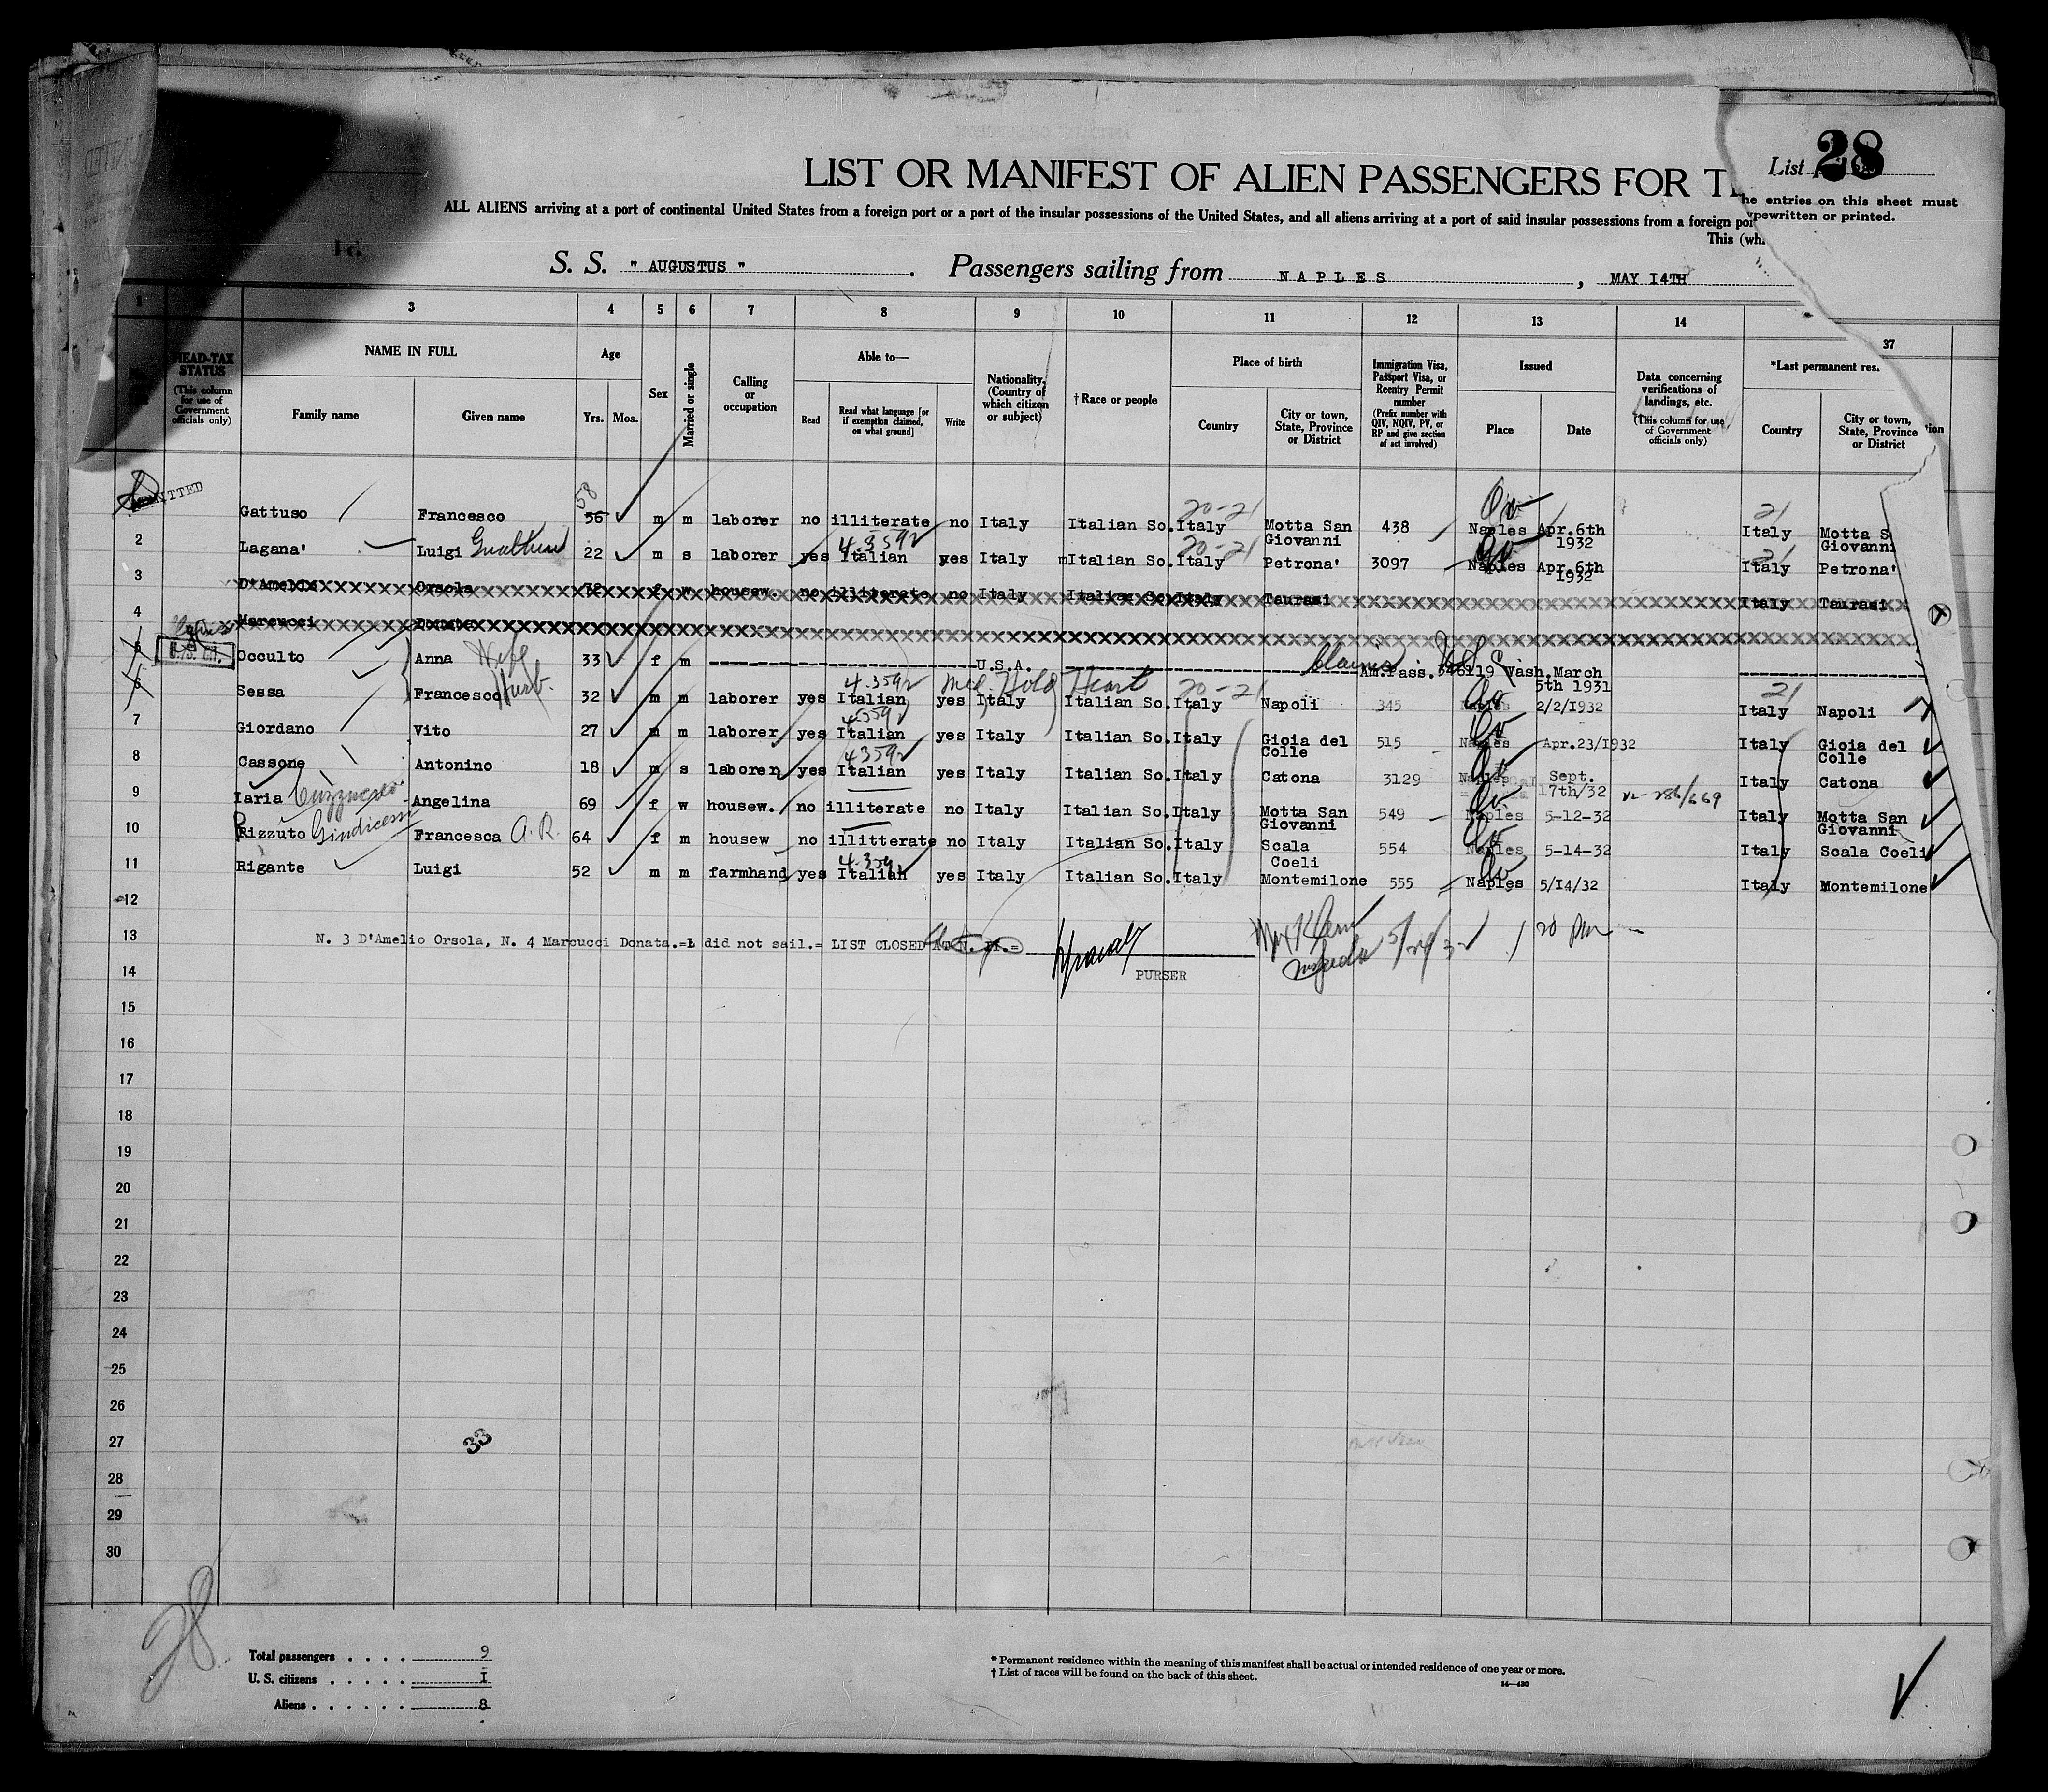 List 28
LIST OR MANIFEST OF ALIEN PASSENGERS FOR T
he entries on this sheet must
ypewritten or printed.
ALL ALIENS arriving at a port of continental United States from a foreign port or a port of the insular possessions of the United States, and all aliens arriving at a port of said insular possessions from a foreign por
This (whi
S. S. " AUGUSTUS " . Passengers sailing from NAPLES , MAY I4TH
1 3 4 5 6 7 8 9 10 11 12 13 14 37
HEAD-TAX STATUS (This column for use of Government officials only)
NAME IN FULL
Family name Given name
Age Yrs. Mos.
Sex
Married or single
Calling or occupation
Able to—
Read Read what language [or if exemption claimed, on what ground] Write
Nationality. (Country of which citizen or subject)
†Race or people
Place of birth
Country City or town, State, Province or District
Immigration Visa, Passport Visa, or Reentry Permit number (Prefix number with QIV, NQIV, PV, or RP and give section of act involved)
Issued
Place Date
Data concerning verifications of landings, etc. (This column for use of Government officials only)
*Last permanent res.
Country City or town, State, Province or District
ADMITTED Gattuso Francesco 56 58 m m laborer no illiterate no Italy Italian So. Italy 20-21 Motta San Giovanni 438 Naples Apr.6th 1932 21 Italy Motta S Giovanni
2 Lagana' Luigi 22 m s laborer yes Italian 4.3592 yes Italy mItalian So. Italy 20-21 Petrona' 3097 Naples Apr.6th 1932 21 Italy Petrona'
3 D'Amelio Orsola 72 f w housew. no illiterate no Italy Italian So. Italy Taurasi Italy Taurasi
4 Marcucci Donata
5 U.S. Cit. Occulto Anna Wife 33 f m U.S.A. Claims U S C Am.Pass. 346119 Wash.March 5th 1931
6 Sessa Francesco Husb. 32 m m laborer yes Italian 4.3592 yes Italy Med. Hold Heart Italian So. Italy 20-21 Napoli 345 Naples 2/2/I932 21 Italy Napoli
7 Giordano Vito 27 m m laborer yes Italian 4359 yes Italy Italian So. Italy Gioia del Colle 515 Naples Apr.23/1932 Italy Gioia del Colle
8 Cassone Antonino 18 m s laborer yes Italian 4359 yes Italy Italian So. Italy Catona 3129 Naples Sept. 17th/32 Italy Catona
9 Iaria Angelina 69 f w housew. no illiterate no Italy Italian So. Italy Motta San Giovanni 549 Naples 5-12-32 Italy Motta San Giovanni
10 Rizzuto Francesca A. R. 64 f m housew no illitterate no Italy Italian So. Italy Scala Coeli 554 Naples 5-14-32 Italy Scala Coeli
11 Rigante Luigi 52 m m farmhand yes Italian 4.359 yes Italy Italian So. Italy Montemilone 555 Naples 5/I4/32 Italy Montemilone
12
13 N. 3 D'Amelio Orsola, N. 4 Marcucci Donata.= did not sail.= LIST CLOSED AT N. II.=
5/24/32 1 20 Pm
PURSER
14
15
16
17
18
19
20
21
22
23
24
25
26
27 33
28
29
30
28
Total passengers . . . . 9
U. S. citizens . . . . . I
Aliens . . . . . . 8
* Permanent residence within the meaning of this manifest shall be actual or intended residence of one year or more.
† List of races will be found on the back of this sheet.
14—430